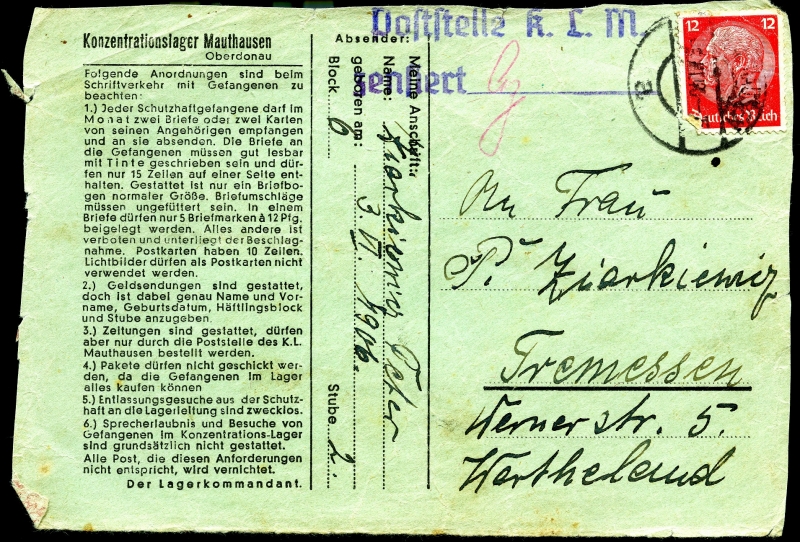 Konzentrationslager Mauthausen
Oberdonau
Folgende Anordnungen sind beim
Schriftverkehr mit Gefangenen zu
beachten:
1.) Jeder Schutzhaftgefangene darf im
Monat zwei Briefe oder zwei Karten
von seinen Angehörigen empfangen
und an sie absenden. Die Briefe an
die Gefangenen müssen gut lesbar
mit Tinte geschrieben sein und dür-
fen nur 15 Zeilen auf einer Seite ent-
halten. Gestattet ist nur ein Briefbo-
gen normaler Größe. Briefumschläge
müssen ungefüttert sein. In einem
Briefe dürfen nur 5 Briefmarken à 12 Pfg.
beigelegt werden. Alles andere ist
verboten und unterliegt der Beschlag-
nahme. Postkarten haben 10 Zeilen.
Lichtbilder dürfen als Postkarten nicht
verwendet werden.
2.) Geldsendungen sind gestattet,
doch ist dabei genau Name und Vor-
name, Geburtsdatum, Häftlingsblock
und Stube anzugeben.
3.) Zeitungen sind gestattet, dürfen
aber nur durch die Poststelle des K.L.
Mauthausen bestellt werden.
4.) Pakete dürfen nicht geschickt wer-
den, da die Gefangenen im Lager
alles kaufen können
5.) Entlassungsgesuche aus der Schutz-
haft an die Lagerleitung sind zwecklos.
6.) Sprecherlaubnis und Besuche von
Gefangenen im Konzentrations-Lager
sind grundsätzlich nicht gestattet.
Alle Post, die diesen Anforderungen
nicht entspricht, wird vernichtet.
Der Lagerkommandant.
Absender:
Meine Anschrift:
Name:
geboren am: 3. VI. 1906.
Block 6 Stube 2.
Poststelle K. L. M.
zensiert
12 12
Deutsches Reich
An Frau
P. Ziarkiewicz
Tremessen
Wernerstr. 5.
Wartheland